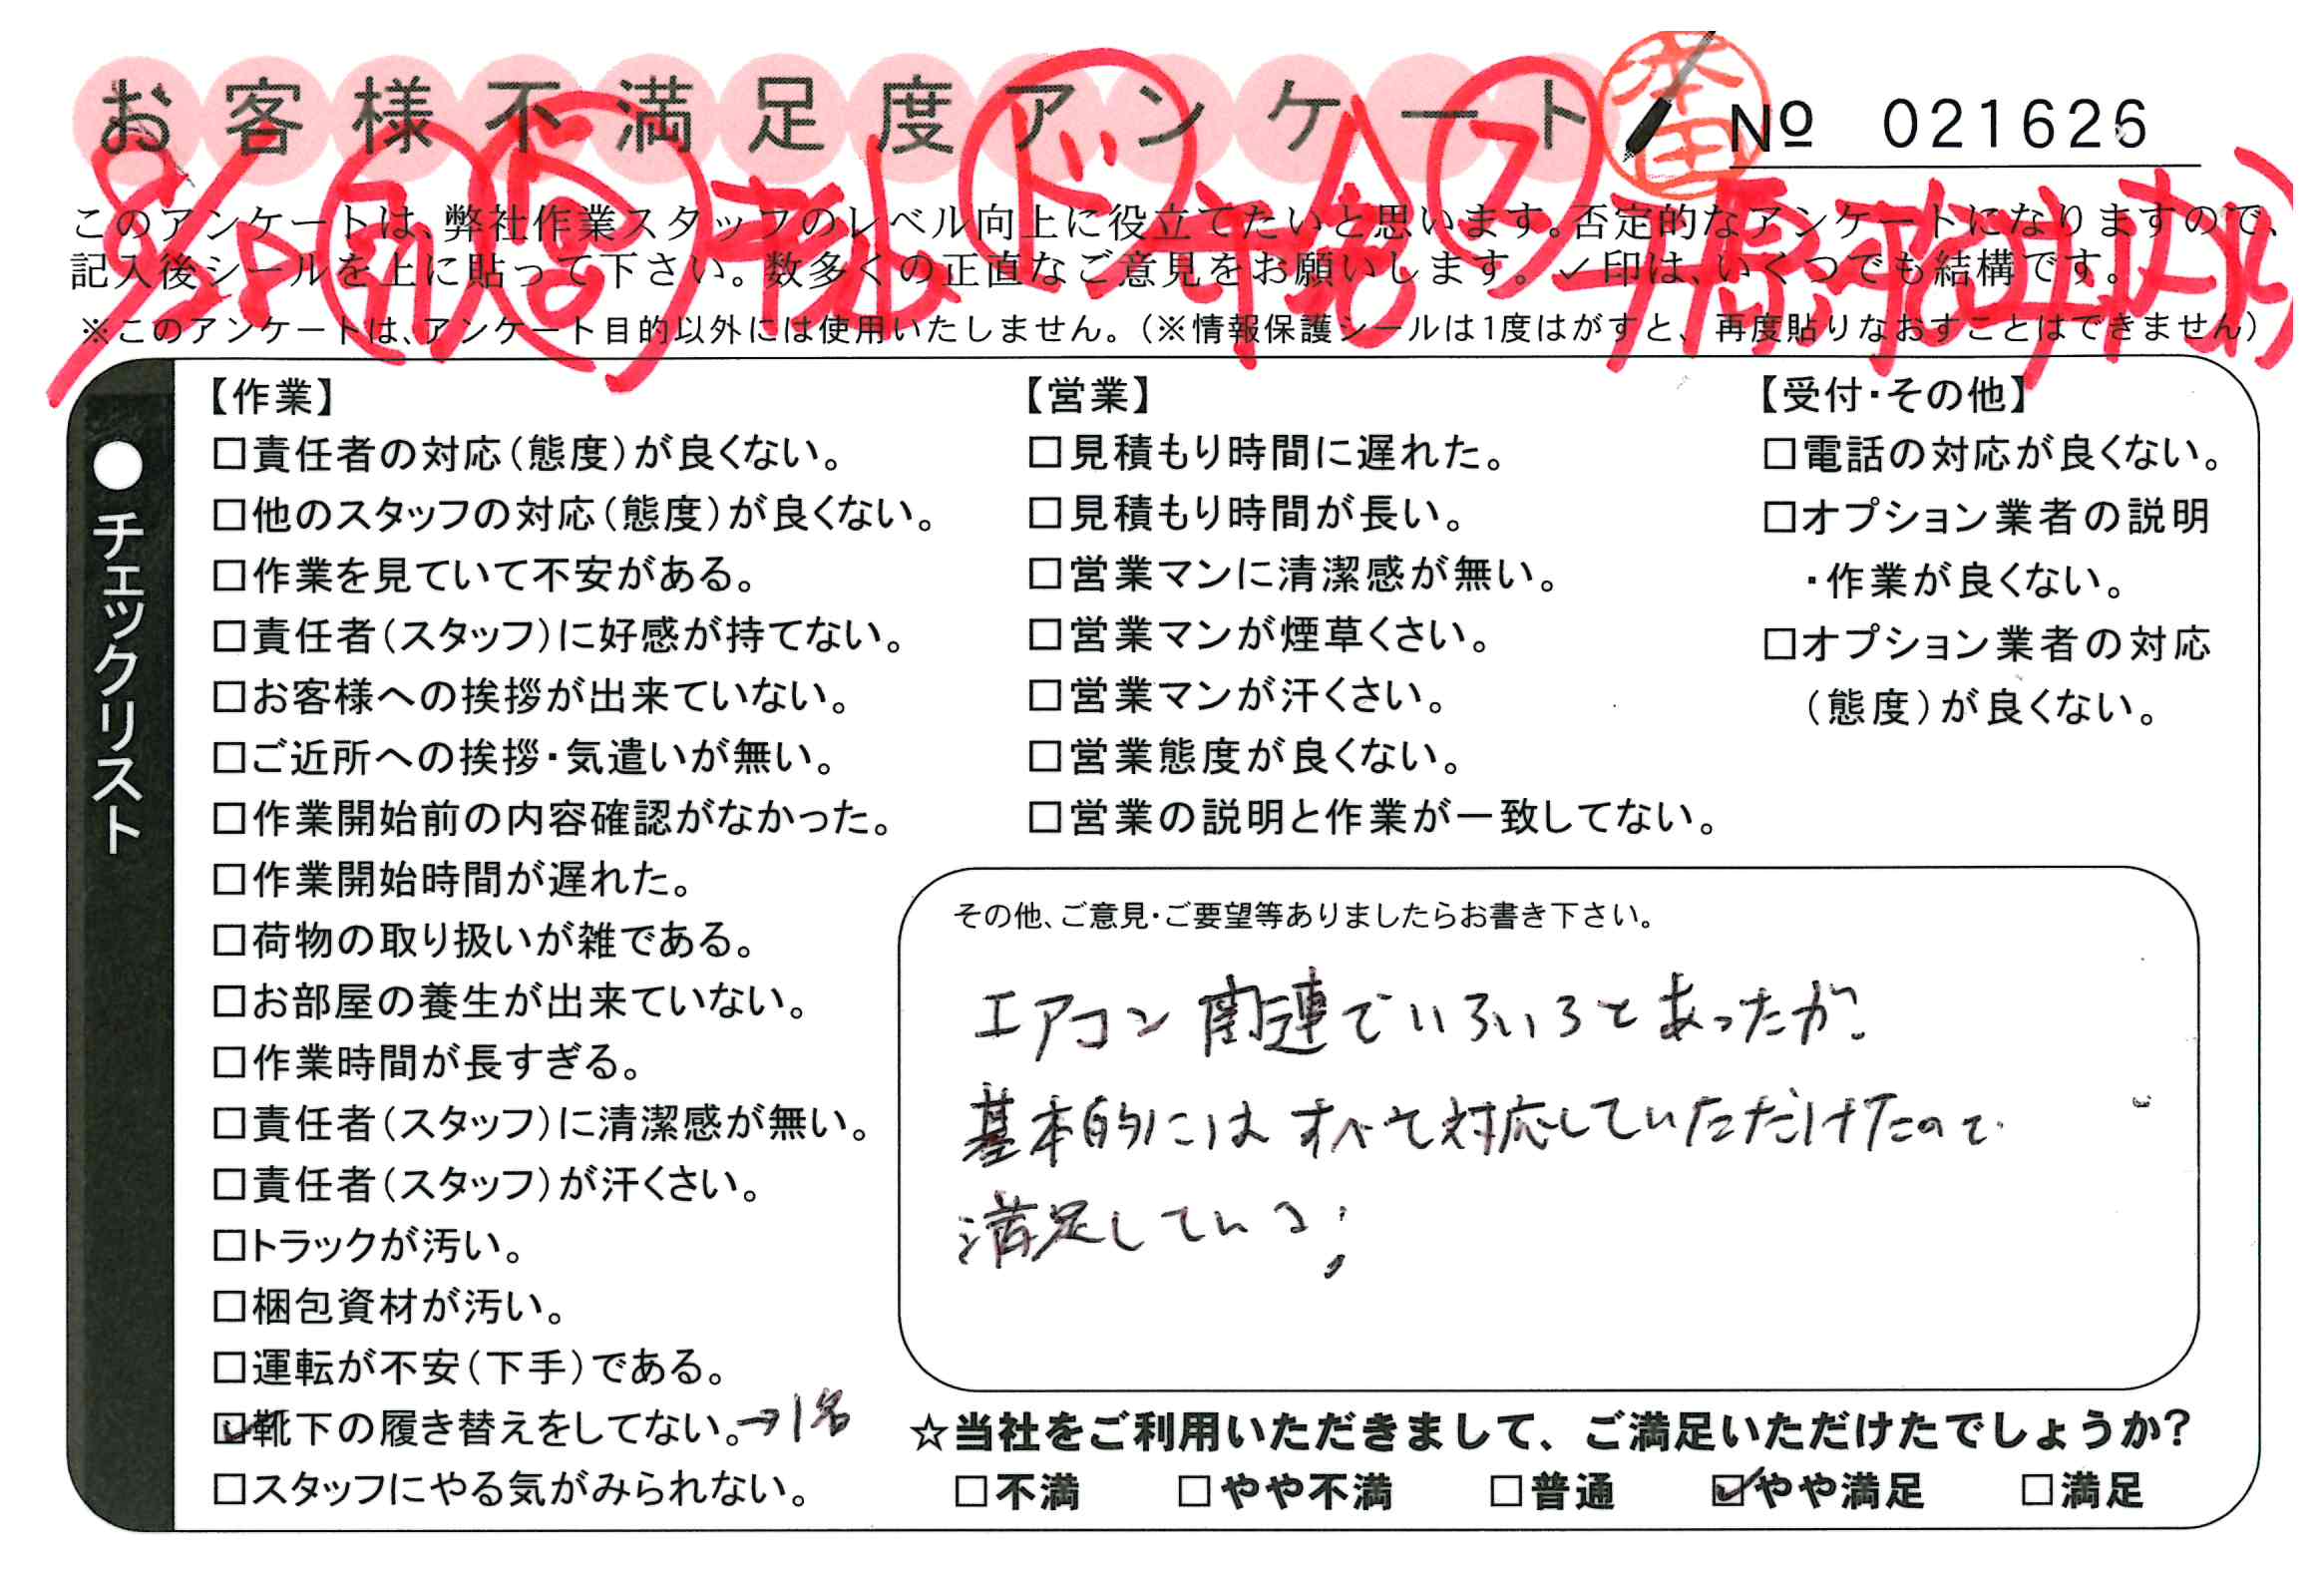 お客様不満足度アンケート
本田
№ 021626
このアンケートは、弊社作業スタッフのレベル向上に役立てたいと思います。否定的なアンケートになりますので、
記入後シールを上に貼って下さい。数多くの正直なご意見をお願いします。✓印は、いくつでも結構です。
※このアンケートは、アンケート目的以外には使用いたしません。(※情報保護シールは1度はがすと、再度貼りなおすことはできません)
●チェックリスト
【作業】
□責任者の対応(態度)が良くない。
□他のスタッフの対応(態度)が良くない。
□作業を見ていて不安がある。
□責任者(スタッフ)に好感が持てない。
□お客様への挨拶が出来ていない。
□ご近所への挨拶・気遣いが無い。
□作業開始前の内容確認がなかった。
□作業開始時間が遅れた。
□荷物の取り扱いが雑である。
□お部屋の養生が出来ていない。
□作業時間が長すぎる。
□責任者(スタッフ)に清潔感が無い。
□責任者(スタッフ)が汗くさい。
□トラックが汚い。
□梱包資材が汚い。
□運転が不安(下手)である。
☑靴下の履き替えをしてない。→1名
□スタッフにやる気がみられない。
【営業】
□見積もり時間に遅れた。
□見積もり時間が長い。
□営業マンに清潔感が無い。
□営業マンが煙草くさい。
□営業マンが汗くさい。
□営業態度が良くない。
□営業の説明と作業が一致してない。
【受付・その他】
□電話の対応が良くない。
□オプション業者の説明
・作業が良くない。
□オプション業者の対応
(態度)が良くない。
その他、ご意見・ご要望等ありましたらお書き下さい。
エアコン関連でいろいろとあったが、
基本的にはすべて対応していただけたので
満足している。
☆当社をご利用いただきまして、ご満足いただけたでしょうか?
□不満 □やや不満 □普通 ☑やや満足 □満足